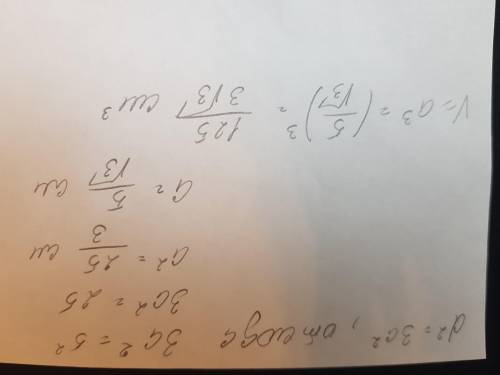 d² = 3a², отсюда 3a² = 5²
3a² = 25
a² = 25/3 см
a = 5/√3 см
V = a³ = (5/√3)³ = 125/3√3 см³